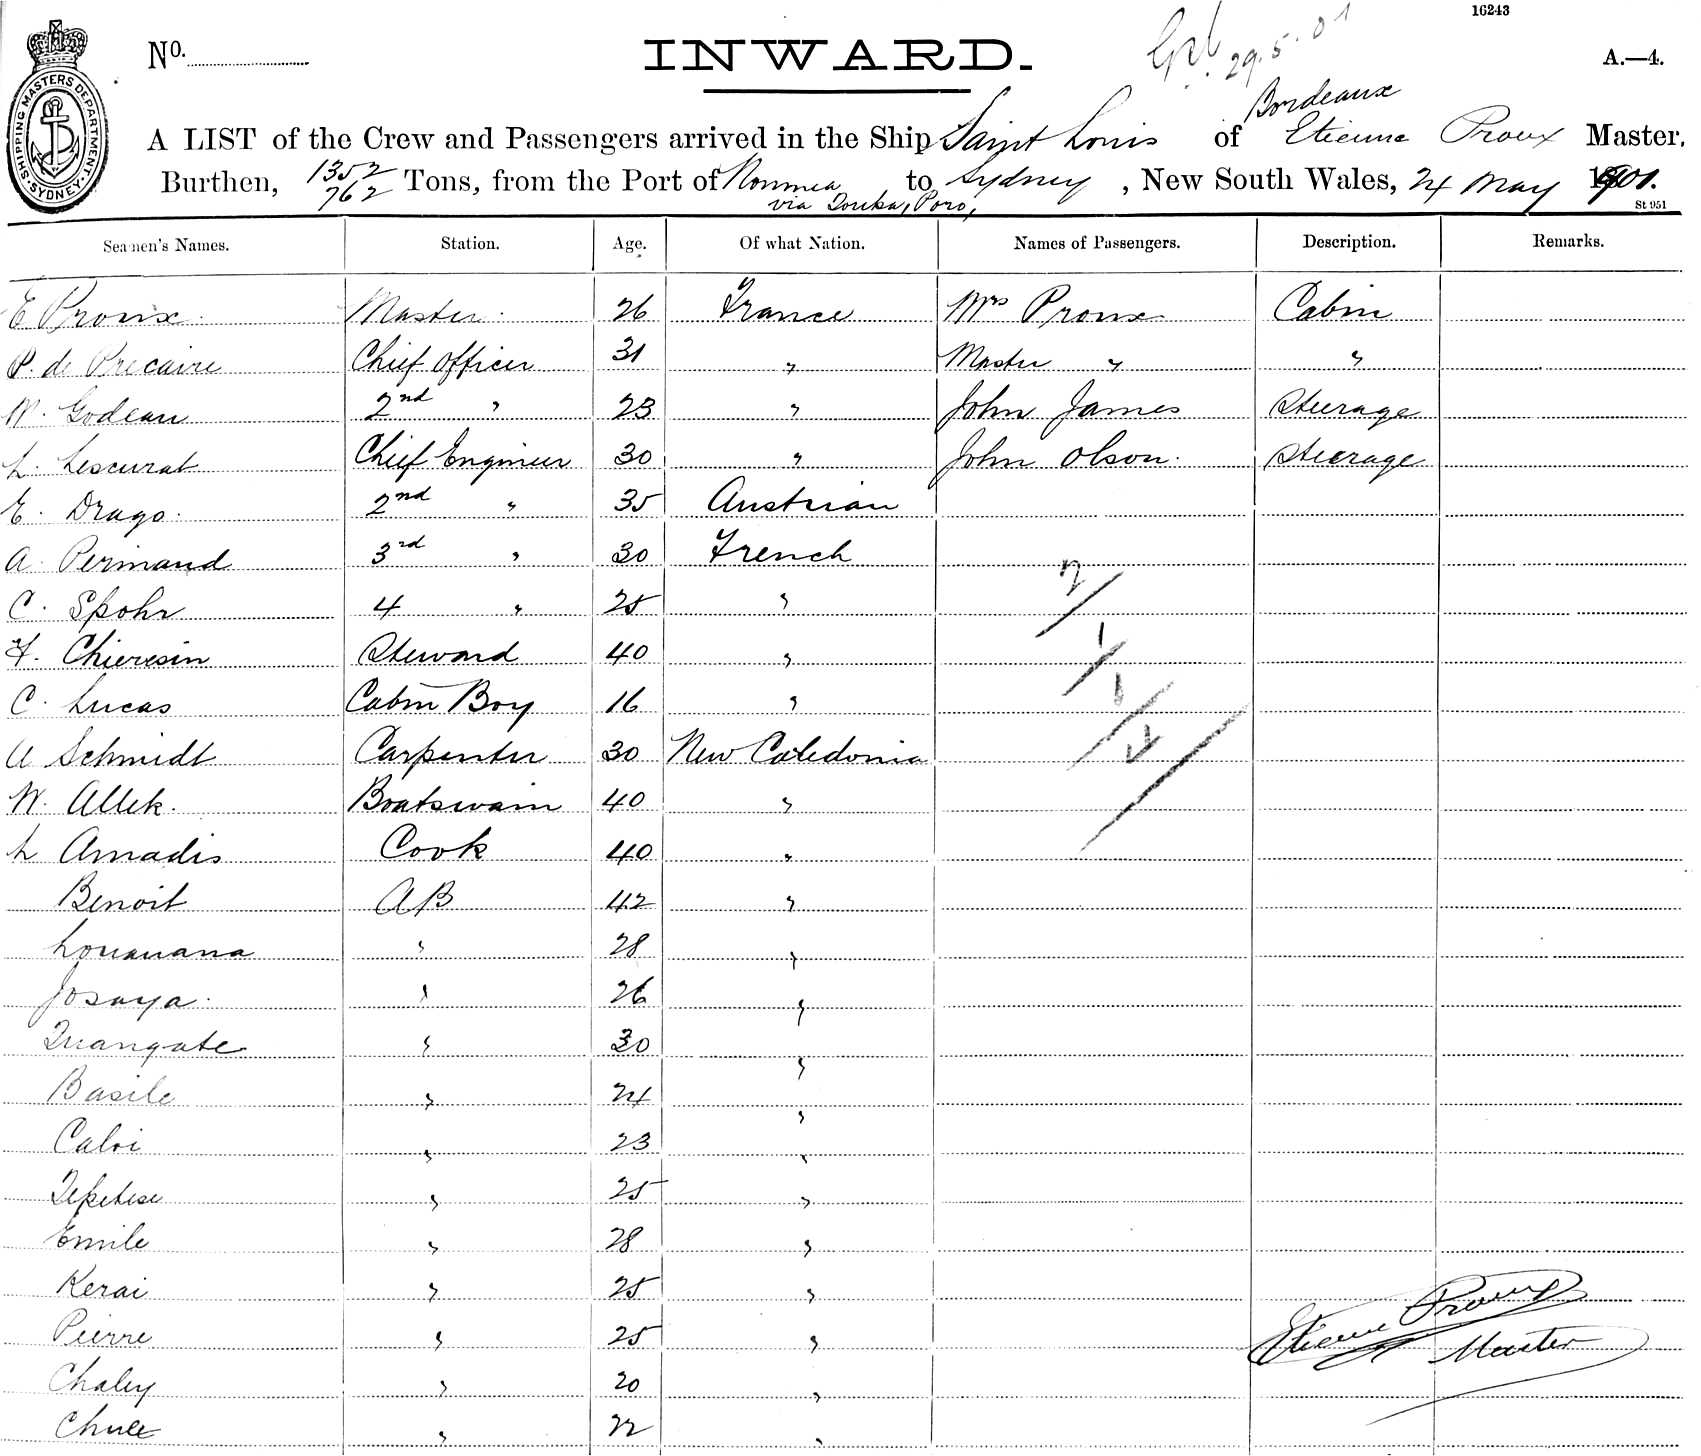 16243
No.
INWARD.
29.5.01
A.—4.
SHIPPING MASTERS DEPARTMENT
SYDNEY
Bordeaux
A LIST of the Crew and Passengers arrived in the Ship Saint Louis of Etienne Proux Master,
Burthen, 1352 Tons, from the Port of Noumea to Sydney, New South Wales, 24 May 1901.
762
via Poro,
St 951
Seamen's Names. Station. Age. Of what Nation. Names of Passengers. Description. Remarks.
E Proux Master 26 France Mrs Proux Cabin
P. de Precaire Chief Officer 31 " Master " "
W. Godeau 2nd " 23 " John James Steerage
L. Lescurat Chief Engineer 30 " John Olson. Steerage
E. Drago. 2nd " 35 Austrian
A. Permand 3rd " 30 French
C. Spohr 4 " 25 "
F. Chieresin Steward 40 "
C. Lucas Cabin Boy 16 "
A Schmidt Carpenter 30 New Caledonia
W. Allek. Boatswain 40 "
L Amadis Cook 40 "
Benoit AB 42 "
Louanana " 28 "
Josaya. " 26 "
" 30 "
Basile " 24 "
Caloi " 23 "
" 25 "
Emile " 28 "
Kerai " 25 "
Pierre " 25 "
Chaley " 20 "
Chule " 22 "
Etienne Proux
Master